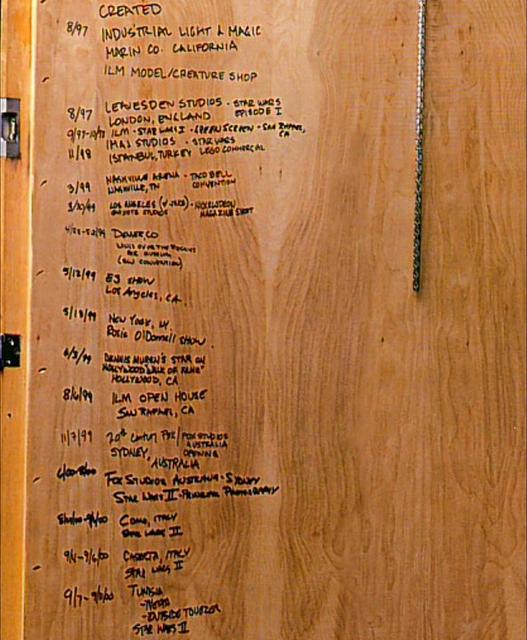 CREATED
8/97 INDUSTRIAL LIGHT & MAGIC
MARIN CO. CALIFORNIA
ILM MODEL/CREATURE SHOP
8/97 LEAVESDEN STUDIOS - STAR WARS
LONDON, ENGLAND EPISODE I
9/97- ILM - STAR WARS I - GREEN SCREEN - SAN RAFAEL, CA
11/98 STUDIOS - STAR WARS
ISTANBUL, TURKEY LEGO COMMERCIAL
3/99 NASHVILLE ARENA - TACO BELL
NASHVILLE, TN CONVENTION
LOS ANGELES - NICKELODEON
STUDIOS MAGAZINE SHOOT
DENVER CO
WINGS OVER THE ROCKIES
AIR MUSEUM
(SW CONVENTION)
5/12/99 E3 SHOW
LOS ANGELES, CA.
5/18/99 NEW YORK, NY
ROSIE O'DONNELL SHOW
6/3/99 DENNIS MUREN'S STAR ON
HOLLYWOOD "WALK OF FAME"
HOLLYWOOD, CA
8/6/99 ILM OPEN HOUSE
SAN RAFAEL, CA
11/7/99 20th CENTURY FOX/FOX STUDIOS
AUSTRALIA
SYDNEY, OPENING
AUSTRALIA
FOX STUDIOS AUSTRALIA - SYDNEY
STAR WARS II - PRINCIPAL PHOTOGRAPHY
COMO, ITALY
STAR WARS II
9/4-9/6/00 CASERTA, ITALY
STAR WARS II
9/7- TUNISIA
- NEFTA
- OUTSIDE TOUZER
STAR WARS II